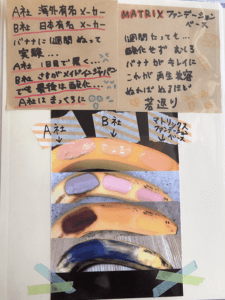 A社 海外有名メーカー
B社 日本有名メーカー
バナナに1週間ぬって
実験...
A社 1日目で黒く...
B社 さすがメイドインジャパン
でも最後は酸化...
A社はまっくろに
MATRIX ファンデーション
ベース
1週間たっても...
酸化せず むしろ
バナナがキレイに
これが再生美容
ぬればぬるほど
若返り
A社
B社
マトリックス
ファンデーション
ベース